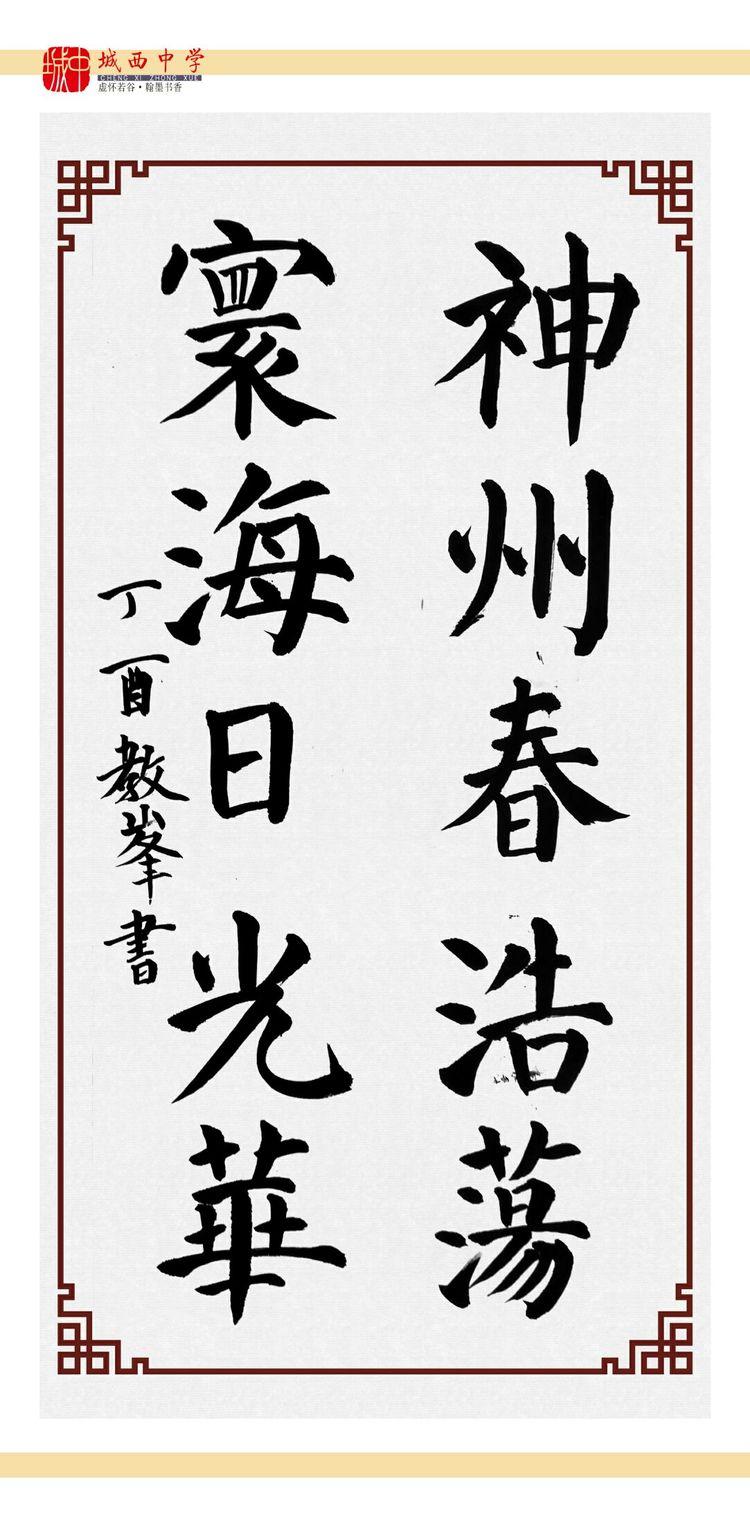 城中
城西中学
CHENG XI ZHONG XUE
虚怀若谷·翰墨书香
神州春浩蕩
寰海日光華
丁酉教峯書